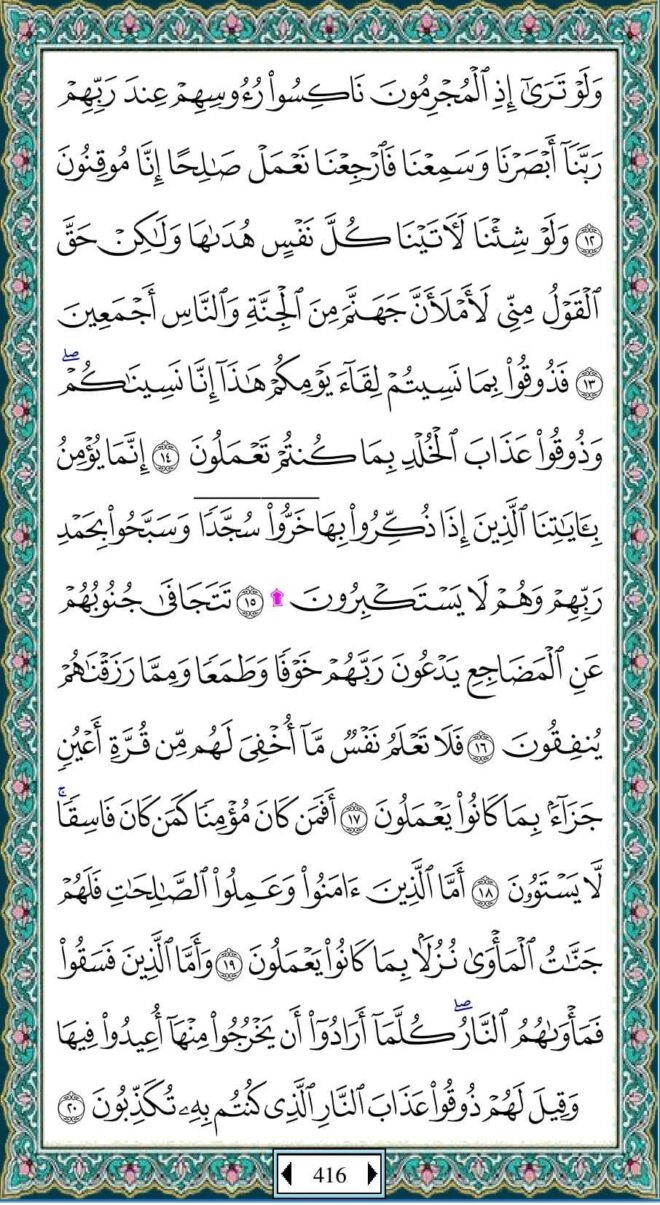 وَلَوۡ تَرَىٰٓ إِذِ ٱلۡمُجۡرِمُونَ نَاكِسُواْ رُءُوسِهِمۡ عِندَ رَبِّهِمۡ
رَبَّنَآ أَبۡصَرۡنَا وَسَمِعۡنَا فَٱرۡجِعۡنَا نَعۡمَلۡ صَٰلِحًا إِنَّا مُوقِنُونَ
١٢ وَلَوۡ شِئۡنَا لَأٓتَيۡنَا كُلَّ نَفۡسٍ هُدَىٰهَا وَلَٰكِنۡ حَقَّ
ٱلۡقَوۡلُ مِنِّي لَأَمۡلَأَنَّ جَهَنَّمَ مِنَ ٱلۡجِنَّةِ وَٱلنَّاسِ أَجۡمَعِينَ
١٣ فَذُوقُواْ بِمَا نَسِيتُمۡ لِقَآءَ يَوۡمِكُمۡ هَٰذَآ إِنَّا نَسِينَٰكُمۡۖ
وَذُوقُواْ عَذَابَ ٱلۡخُلۡدِ بِمَا كُنتُمۡ تَعۡمَلُونَ ١٤ إِنَّمَا يُؤۡمِنُ
بِـَٔايَٰتِنَا ٱلَّذِينَ إِذَا ذُكِّرُواْ بِهَا خَرُّواْۤ سُجَّدٗاۤ وَسَبَّحُواْ بِحَمۡدِ
رَبِّهِمۡ وَهُمۡ لَا يَسۡتَكۡبِرُونَ ۩ ١٥ تَتَجَافَىٰ جُنُوبُهُمۡ
عَنِ ٱلۡمَضَاجِعِ يَدۡعُونَ رَبَّهُمۡ خَوۡفٗا وَطَمَعٗا وَمِمَّا رَزَقۡنَٰهُمۡ
يُنفِقُونَ ١٦ فَلَا تَعۡلَمُ نَفۡسٞ مَّآ أُخۡفِيَ لَهُم مِّن قُرَّةِ أَعۡيُنٖ
جَزَآءَۢ بِمَا كَانُواْ يَعۡمَلُونَ ١٧ أَفَمَن كَانَ مُؤۡمِنٗا كَمَن كَانَ فَاسِقٗاۚ
لَّا يَسۡتَوُۥنَ ١٨ أَمَّا ٱلَّذِينَ ءَامَنُواْ وَعَمِلُواْ ٱلصَّٰلِحَٰتِ فَلَهُمۡ
جَنَّٰتُ ٱلۡمَأۡوَىٰ نُزُلَۢا بِمَا كَانُواْ يَعۡمَلُونَ ١٩ وَأَمَّا ٱلَّذِينَ فَسَقُواْ
فَمَأۡوَىٰهُمُ ٱلنَّارُۖ كُلَّمَآ أَرَادُوٓاْ أَن يَخۡرُجُواْ مِنۡهَآ أُعِيدُواْ فِيهَا
وَقِيلَ لَهُمۡ ذُوقُواْ عَذَابَ ٱلنَّارِ ٱلَّذِي كُنتُم بِهِۦ تُكَذِّبُونَ ٢٠
416